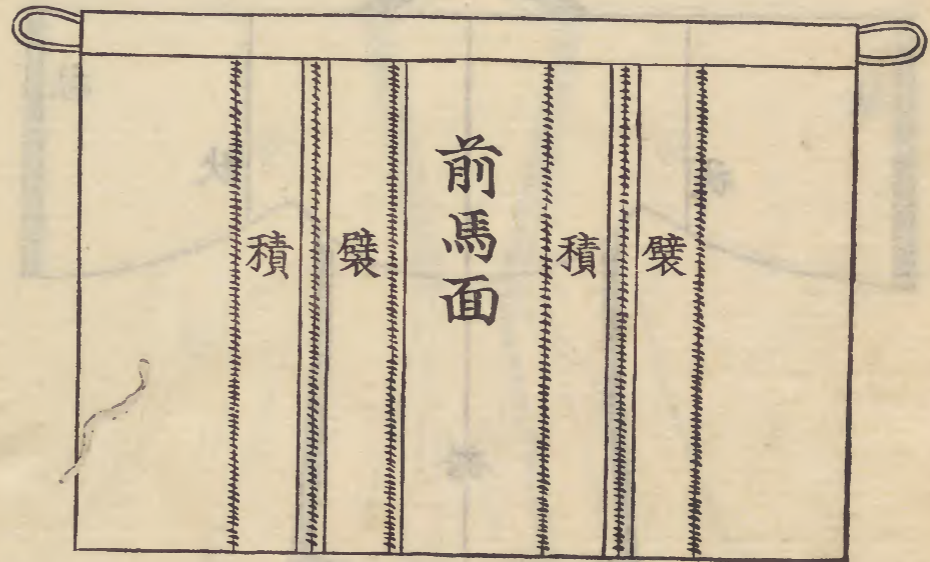 襞
積
前馬面
襞
積